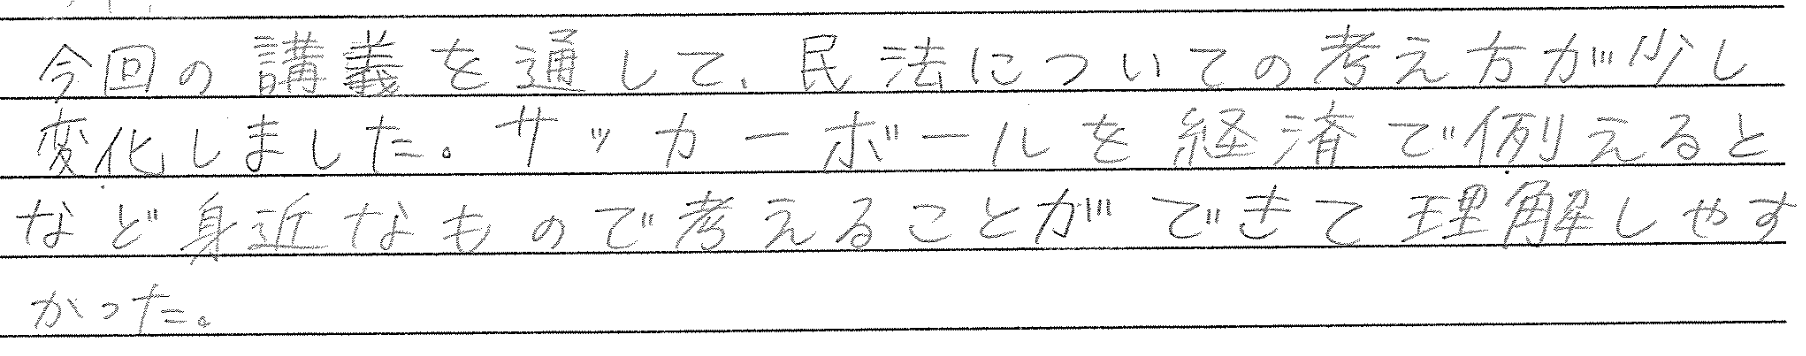 今回の講義を通して、民法についての考え方が少し
変化しました。サッカーボールを経済で例えると
など身近なもので考えることができて理解しやす
かった。